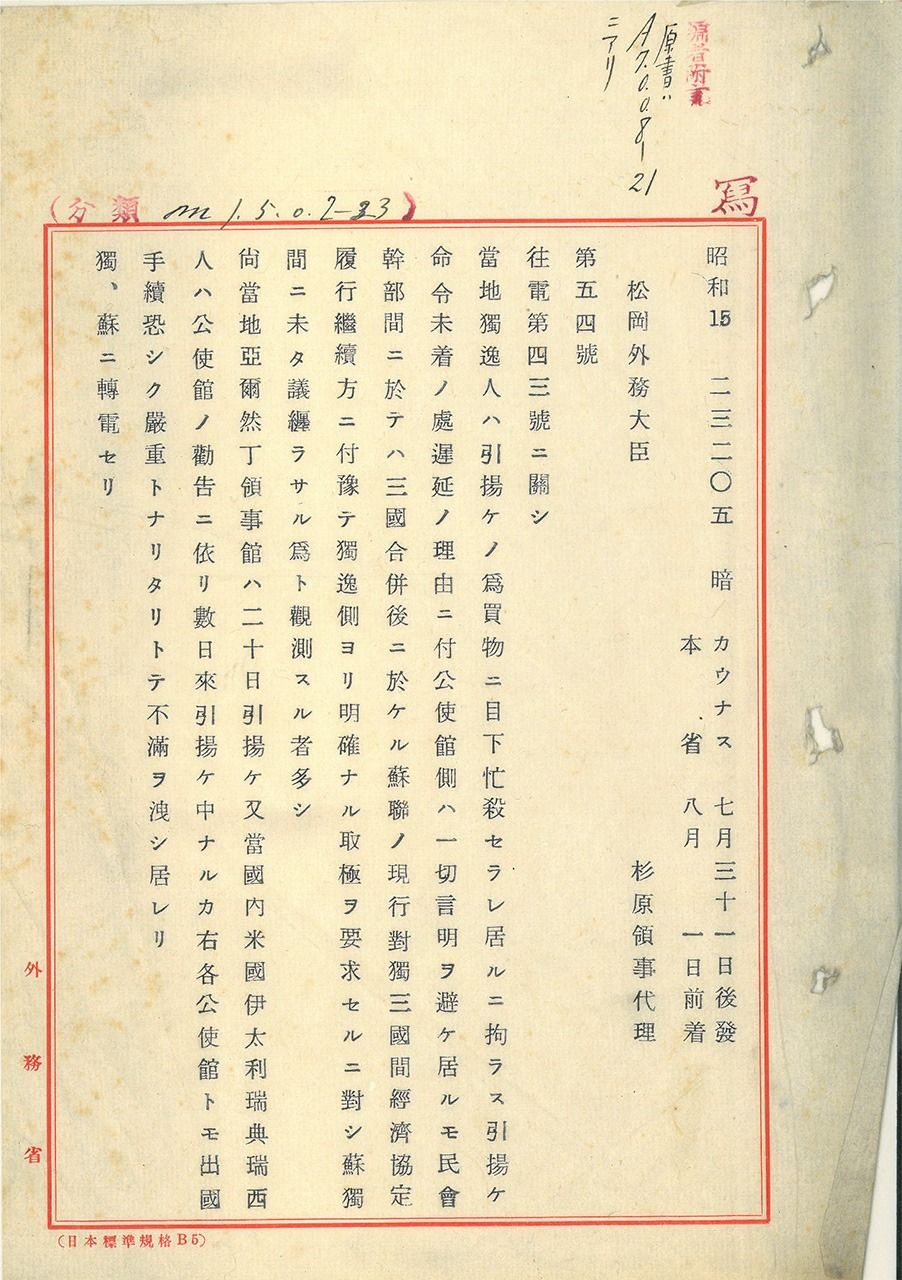 編者附記
原書ハ
A7.0.0.8-21
ニアリ
寫
(分類 m 1.5.0.2-23)
昭和15 二三二〇五 暗 カウナス 七月三十一日後發
本 省 八月 一日前着
松岡外務大臣 杉原領事代理
第五四號
往電第四三號ニ關シ
當地獨逸人ハ引揚ケノ爲買物ニ目下忙殺セラレ居ルニ拘ラス引揚ケ
命令未着ノ處遲延ノ理由ニ付公使館側ハ一切言明ヲ避ケ居ルモ民會
幹部間ニ於テハ三國合併後ニ於ケル蘇聯ノ現行對獨三國間經濟協定
履行繼續方ニ付豫テ獨逸側ヨリ明確ナル取極ヲ要求セルニ對シ蘇獨
間ニ未タ議纒ラサル爲ト觀測スル者多シ
尙當地亞爾然丁領事館ハ二十日引揚ケ又當國內米國伊太利瑞典瑞西
人ハ公使館ノ勸告ニ依リ數日來引揚ケ中ナルカ右各公使館トモ出國
手續恐シク嚴重トナリタリトテ不滿ヲ洩シ居レリ
獨、蘇ニ轉電セリ
外務省
(日本標準規格B5)